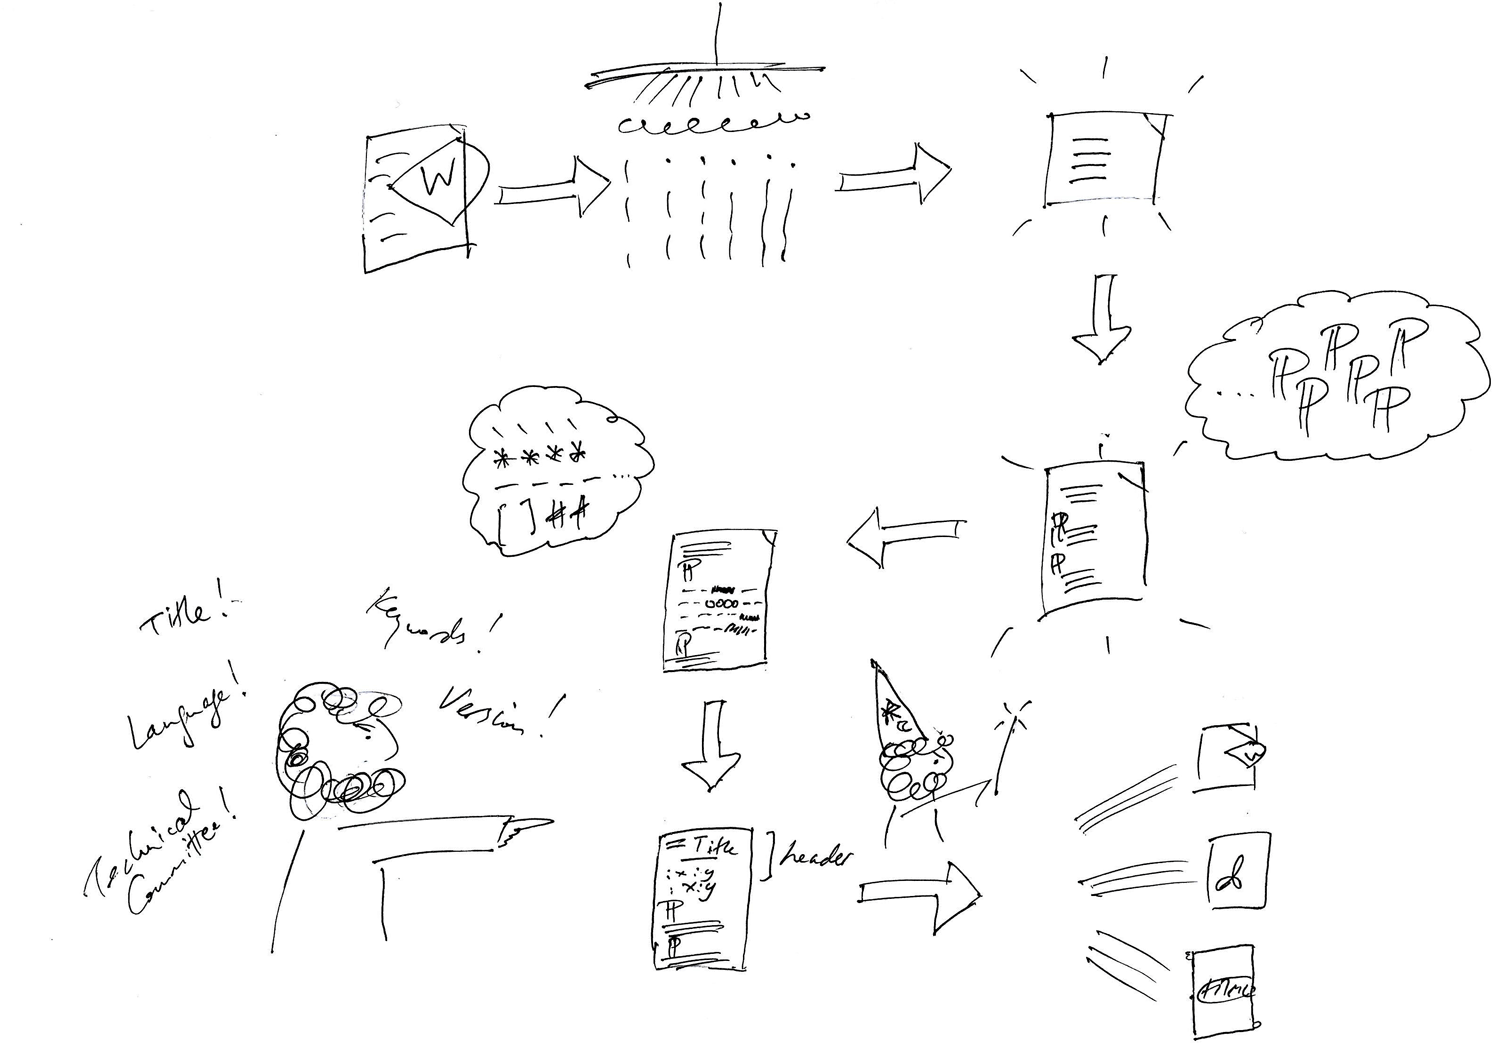 W
P P P
P P P
...
* * * *
- - - - - ...
[ ] # #
P
P
P
P
Title!
Keywords!
Language!
Version!
Technical
Committee!
= Title
:x:y
: x:y
P
P
header
*
W
HTML